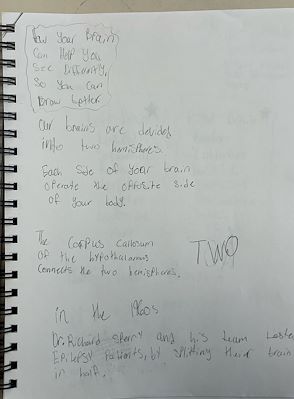 How Your Brain
Can Help You
See Differently,
So You Can
Draw better
Our brains are devided
into two hemispheres.
Each side of your brain
operate the opposite side
of your body.
The Corpus Callosum
of the hypothalamus
connects the two hemispheres.
TWO
in the 1960s
Dr. Richard Sperry and his team tested
Epilepsy patients, by splitting their brain
in half.